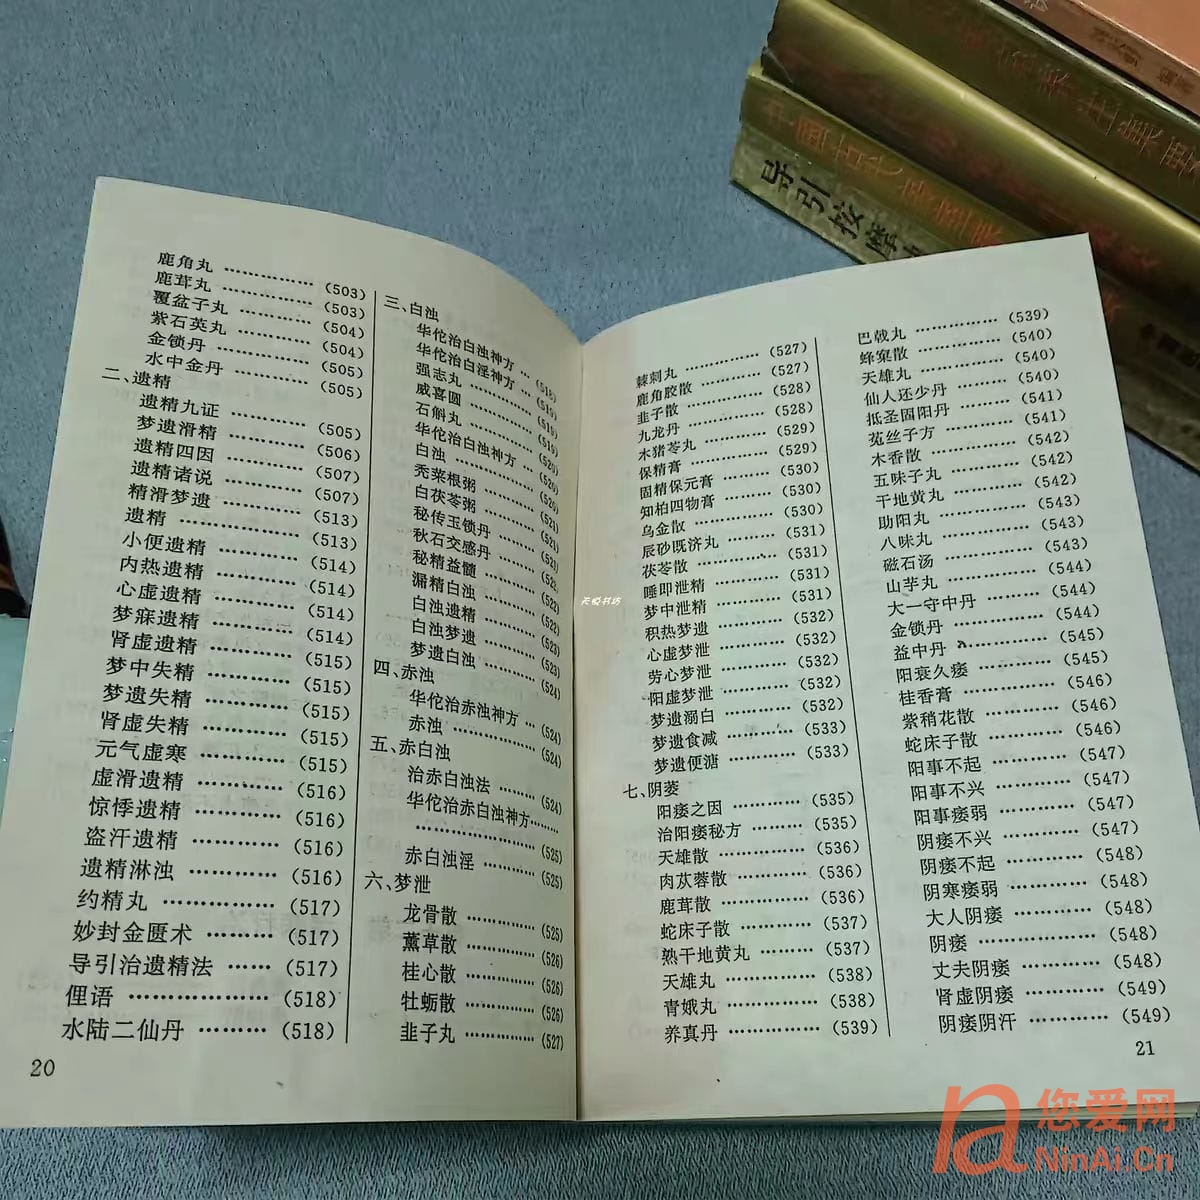 鹿角丸 …………… (503)
鹿茸丸 …………… (503)
覆盆子丸 ………… (504)
紫石英丸 ………… (504)
金锁丹 …………… (505)
水中金丹 ………… (505)
二、遗精
遗精九证 ………… (505)
梦遗滑精 ………… (506)
遗精四因 ………… (507)
遗精诸说 ………… (507)
精滑梦遗 ………… (513)
遗精 ……………… (513)
小便遗精 ………… (514)
内热遗精 ………… (514)
心虚遗精 ………… (514)
梦寐遗精 ………… (514)
肾虚遗精 ………… (515)
梦中失精 ………… (515)
梦遗失精 ………… (515)
肾虚失精 ………… (515)
元气虚寒 ………… (515)
虚滑遗精 ………… (516)
惊悸遗精 ………… (516)
盗汗遗精 ………… (516)
遗精淋浊 ………… (516)
约精丸 …………… (517)
妙封金匮术 ……… (517)
导引治遗精法 …… (517)
俚语 ……………… (518)
水陆二仙丹 ……… (518)
20
三、白浊
华佗治白浊神方 … (518)
华佗治白淫神方 … (518)
强志丸 …………… (519)
威喜圆 …………… (519)
石斛丸 …………… (519)
华佗治白浊神方 … (520)
白浊 ……………… (520)
秃菜根粥 ………… (520)
白茯苓粥 ………… (521)
秘传玉锁丹 ……… (521)
秋石交感丹 ……… (521)
秘精益髓 ………… (522)
漏精白浊 ………… (522)
白浊遗精 ………… (522)
白浊梦遗 ………… (523)
梦遗白浊 ………… (523)
四、赤浊 (524)
华佗治赤浊神方 … (524)
赤浊 ……………… (524)
五、赤白浊
治赤白浊法 ……… (524)
华佗治赤白浊神方………
…………………… (525)
赤白浊淫 ………… (525)
六、梦泄
龙骨散 …………… (525)
薰草散 …………… (526)
桂心散 …………… (526)
牡蛎散 …………… (526)
韭子丸 …………… (527)
棘刺丸 …………… (527)
鹿角胶散 ………… (527)
韭子散 …………… (528)
九龙丹 …………… (528)
木猪苓丸 ………… (529)
保精膏 …………… (529)
固精保元膏 ……… (530)
知柏四物膏 ……… (530)
乌金散 …………… (530)
辰砂既济丸 ……… (531)
茯苓散 …………… (531)
唾即泄精 ………… (531)
梦中泄精 ………… (531)
积热梦遗 ………… (532)
心虚梦泄 ………… (532)
劳心梦泄 ………… (532)
阳虚梦泄 ………… (532)
梦遗溺白 ………… (532)
梦遗食减 ………… (533)
梦遗便溏 ………… (533)
七、阴萎
阳痿之因 ………… (535)
治阳痿秘方 ……… (535)
天雄散 …………… (536)
肉苁蓉散 ………… (536)
鹿茸散 …………… (536)
蛇床子散 ………… (537)
熟干地黄丸 ……… (537)
天雄丸 …………… (538)
青娥丸 …………… (538)
养真丹 …………… (539)
巴戟丸 …………… (539)
蜂窠散 …………… (540)
天雄丸 …………… (540)
仙人还少丹 ……… (540)
抵圣固阳丹 ……… (541)
菟丝子方 ………… (541)
木香散 …………… (542)
五味子丸 ………… (542)
干地黄丸 ………… (542)
助阳丸 …………… (543)
八味丸 …………… (543)
磁石汤 …………… (543)
山芋丸 …………… (544)
大一守中丹 ……… (544)
金锁丹 …………… (544)
益中丹 …………… (545)
阳衰久痿 ………… (545)
桂香膏 …………… (546)
紫稍花散 ………… (546)
蛇床子散 ………… (546)
阳事不起 ………… (547)
阳事不兴 ………… (547)
阳事痿弱 ………… (547)
阴痿不兴 ………… (547)
阴痿不起 ………… (548)
阴寒痿弱 ………… (548)
大人阴痿 ………… (548)
阴痿 ……………… (548)
丈夫阴痿 ………… (548)
肾虚阴痿 ………… (549)
阴痿阴汗 ………… (549)
21
天悦书坊
导引按摩
您爱网
NinAi.Cn